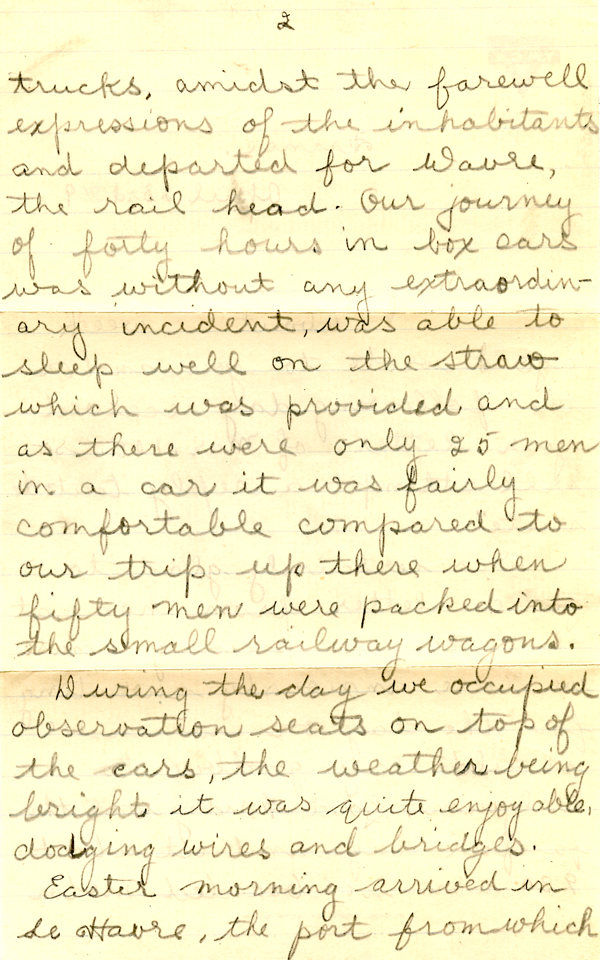 2
trucks, amidst the farewell
expressions of the inhabitants
and departed for Wavre,
the rail head. Our journey
of forty hours in box cars
was without any extraordin-
ary incident, was able to
sleep well on the straw
which was provided and
as there were only 25 men
in a car it was fairly
comfortable compared to
our trip up there when
fifty men were packed into
the small railway wagons.
During the day we occupied
observation seats on top of
the cars, the weather being
bright it was quite enjoyable,
dodging wires and bridges.
Easter morning arrived in
Le Havre, the port from which